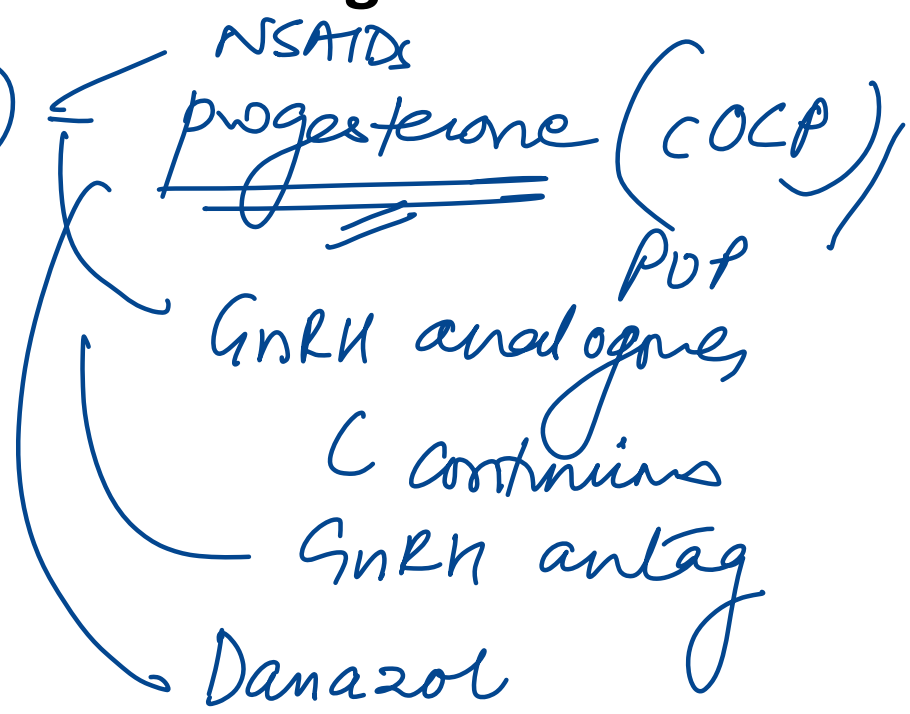 NSAIDs
progesterone (COCP),
POP
GnRH analogues
( continuous
GnRH antag
Danazol